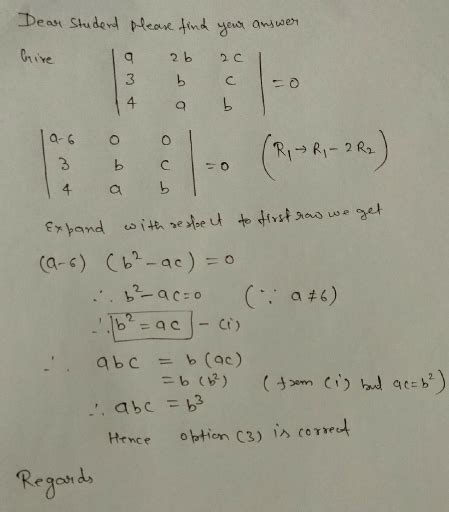 Dear Student Please find your answer
Give | a 2b 2c |
| 3 b c | = 0
| 4 a b |
| a-6 0 0 |
| 3 b c | = 0 (R₁→R₁-2R₂)
| 4 a b |
Expand with respect to first row we get
(a-6) (b²-ac) = 0
∴ b²-ac=0 (∵ a≠6)
∴ b² = ac - (i)
∴ abc = b(ac)
= b(b²) (from (i) but ac=b²)
∴ abc = b³
Hence option (3) is correct
Regards